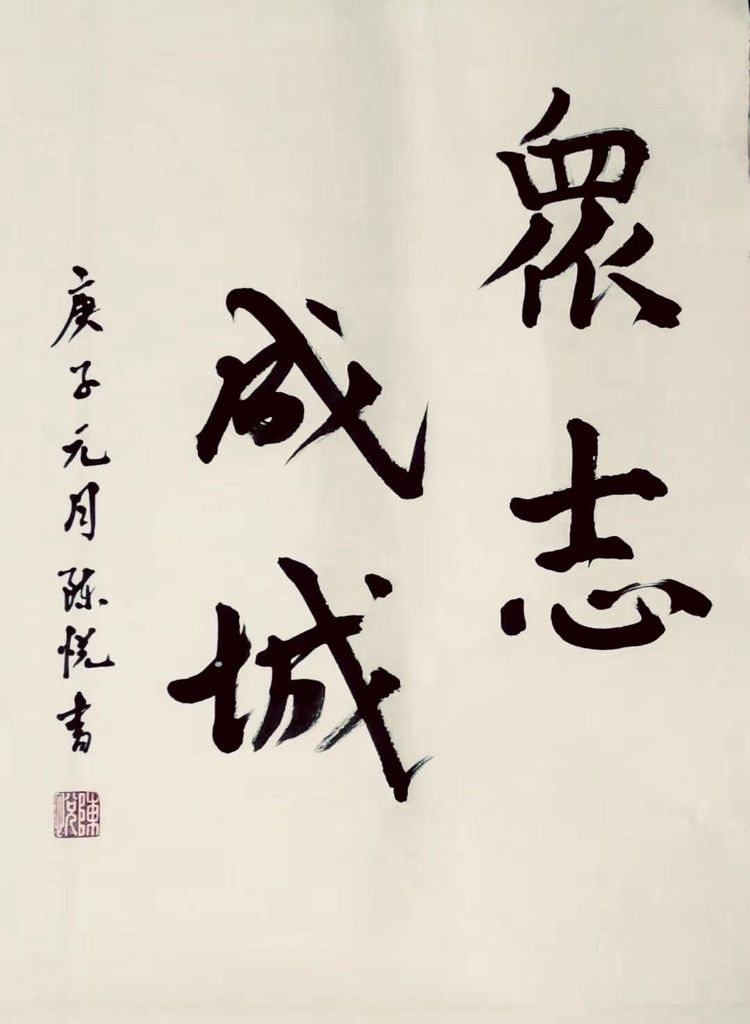 眾志
成城
庚子元月陈悦书
陳悅